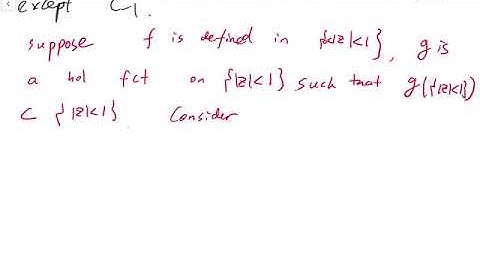 except C₁.
suppose f is defined in {|z|<1}, g is
a hol fct on {|z|<1} such that g({|z|<1})
⊂ {|z|<1}. Consider